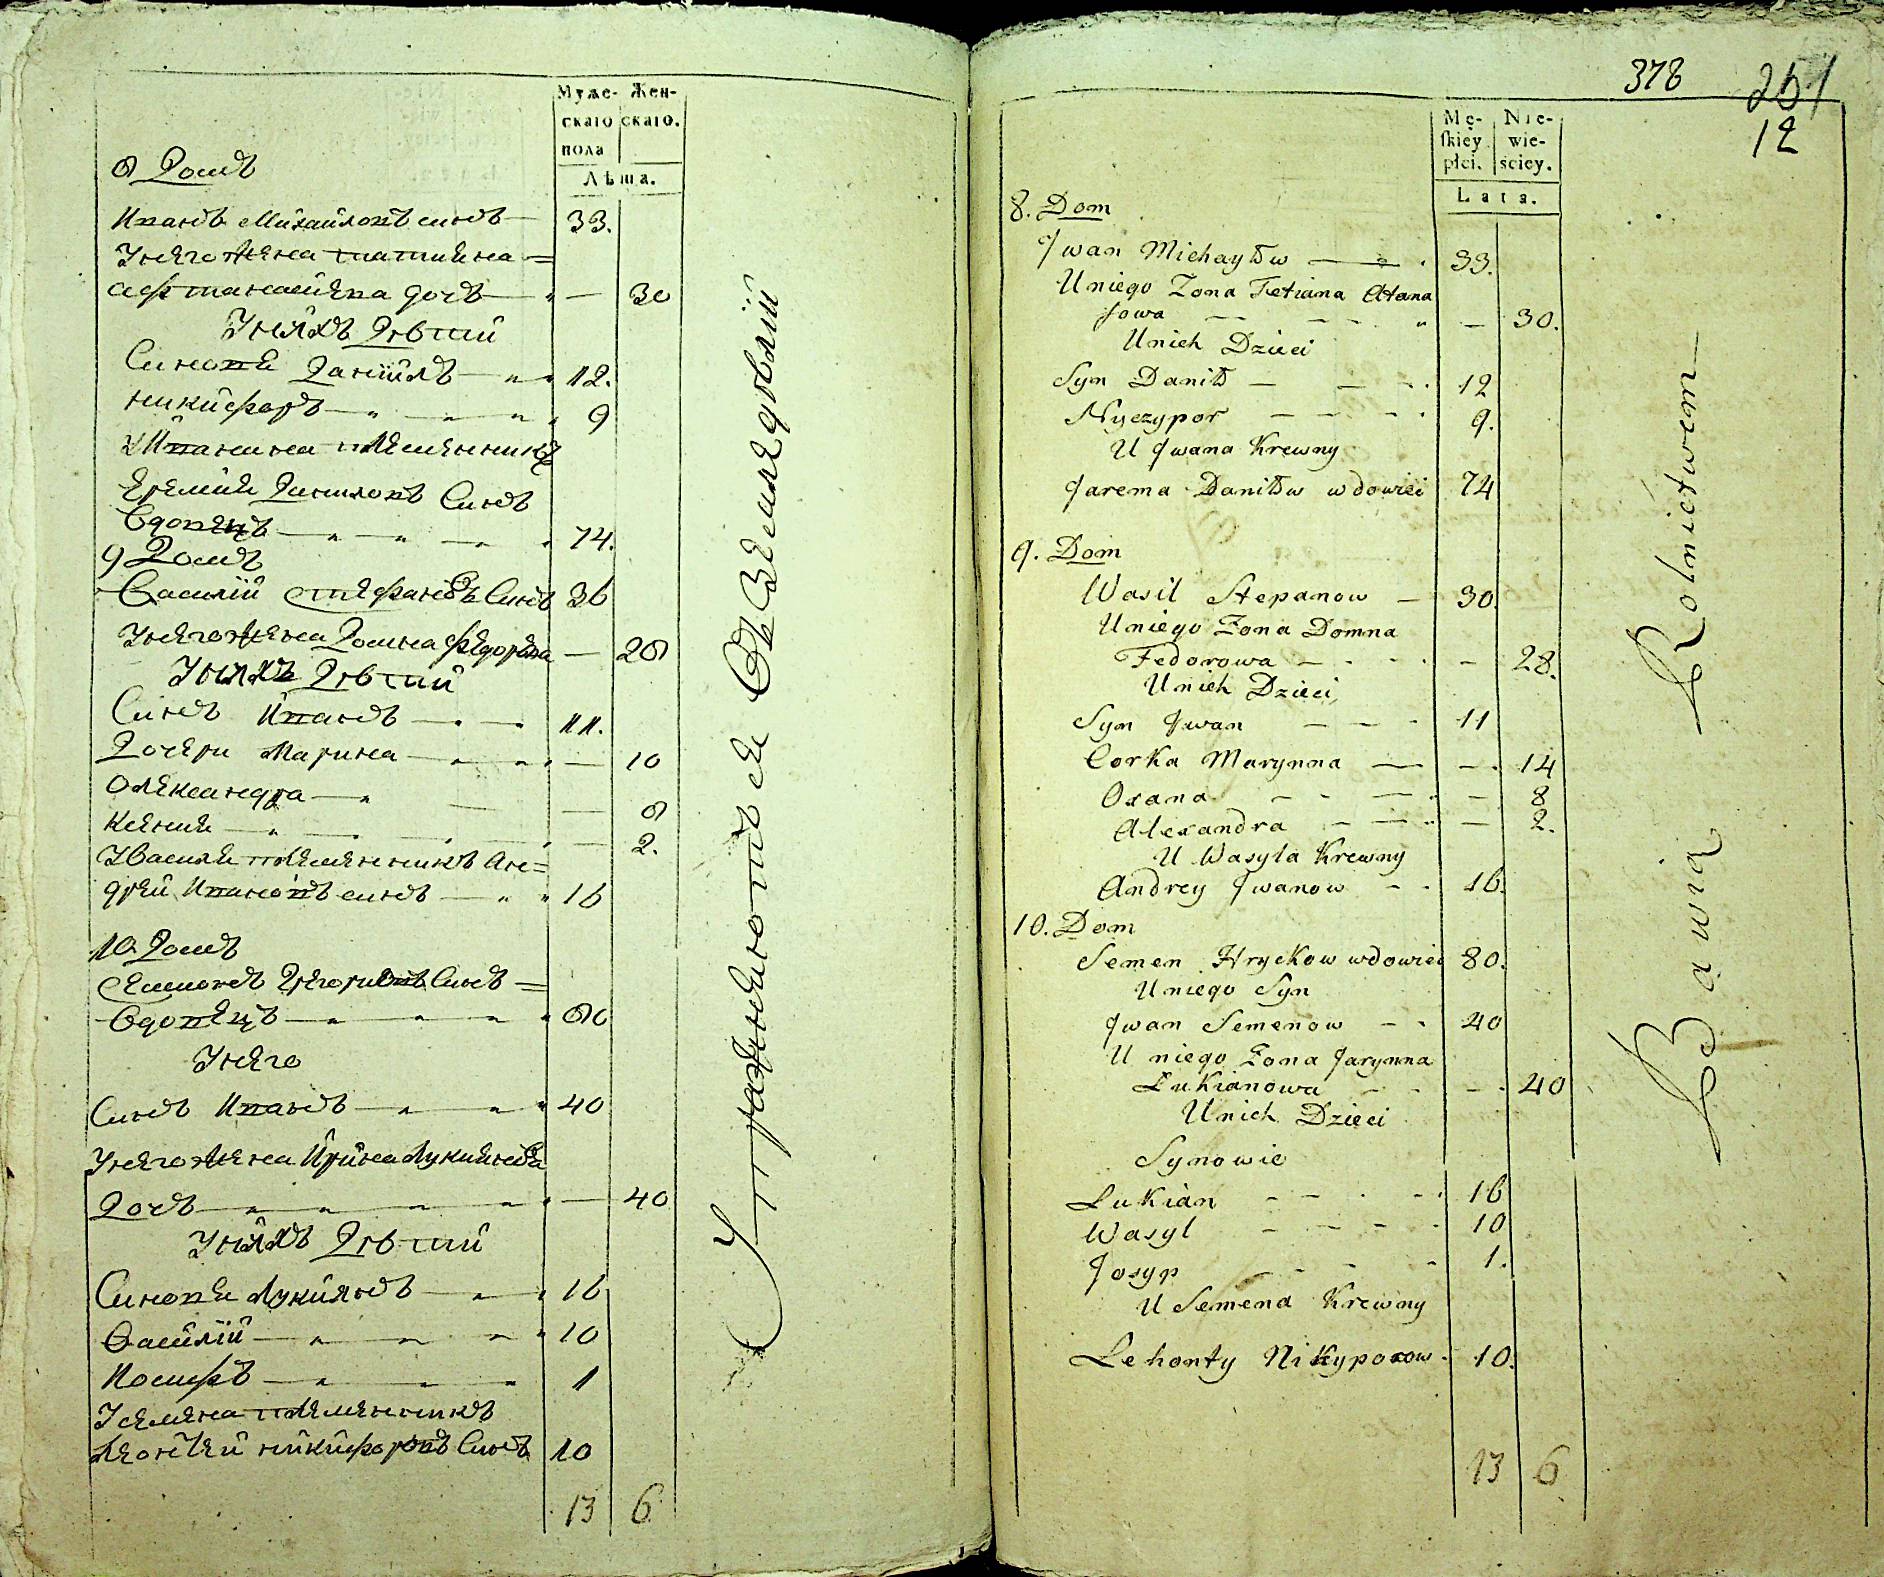 Муже-
скаго
пола
Жен-
скаго.
Лѣта.
8 Домъ
Иванъ Михайловъ синъ 33.
Унего жена татияна
афтанасиева дочъ — 30
Унихъ Дѣтий
Синовя Данйилъ 12.
никифоръ 9
У Ивана племенникъ
Еремия Даниловъ Синъ
Вдовецъ 74.
9 Домъ
Василїй Стефановъ Синъ 36
Унего жена Домна федорова — 28
Унихъ Дѣтий
Синъ Иванъ 11.
Дочери Марина — 10
Олександра — 8
Ксения — 2.
У Василя племенникъ Ан=
дрей Ивановъ синъ 16
10 Домъ
Семионъ Григориевъ Синъ =
Вдовецъ 80
Унего
Синъ Иванъ 40
Унего жена Ирина Лукиянова
Дочъ — 40
Унихъ Дѣтий
Синовя Лукиянъ 16
Василїй 10
Иосифъ 1
У семена племенникъ
Леонтей никифоровъ Синъ 10
13 6
Упражняются в Земледѣлїй
378 251
12
Mę-
skiey
płci.
Nie-
wie-
ściey.
Lata.
8. Dom
Jwan Michayłow 33.
Uniego Zona Tetiana Atana
sowa — 30.
Unich Dzieci
Syn Daniło 12
Nyczypor 9.
U Jwana Krewny
Jarema Daniłow wdowiec 74
9. Dom
Wasil Stepanow 30.
Uniego Zona Domna
Fedorowa — 28.
Unich Dzieci
Syn Jwan 11
Corka Marynna — 14
Oxana — 8
Alexandra — 2.
U Wasyla Krewny
Andrey Jwanow 16.
10. Dom
Semen Hryckow wdowiec 80.
Uniego Syn
Jwan Semenow 40
U niego Zona Jarynna
Łukianowa — 40
Unich Dzieci
Synowie
Łukian 16
Wasyl 10
Josyp 1.
U Semena Krewny
Lehonty Nikyporow 10.
13 6
Bawią Rolnictwem